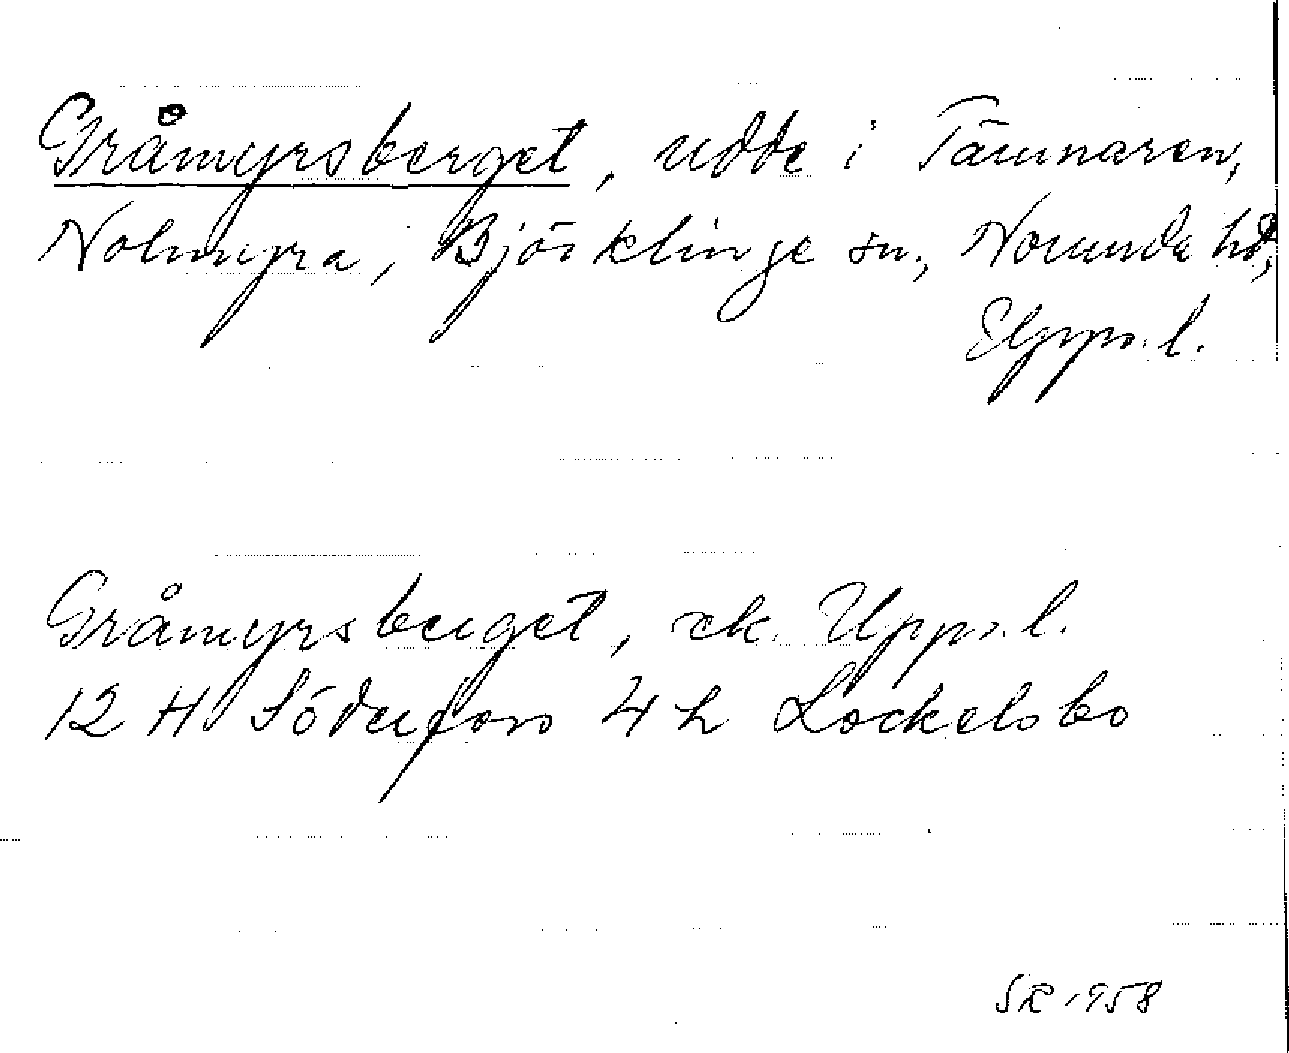 Gråmyrsberget, udde i Tämnaren,
Nolmyra, Björklinge sn., Norunda hd,
Upps. l.
Gråmyrsberget, ek. Upps. l.
12 H Söderfors 4 h Lockelsbo
SR 1958